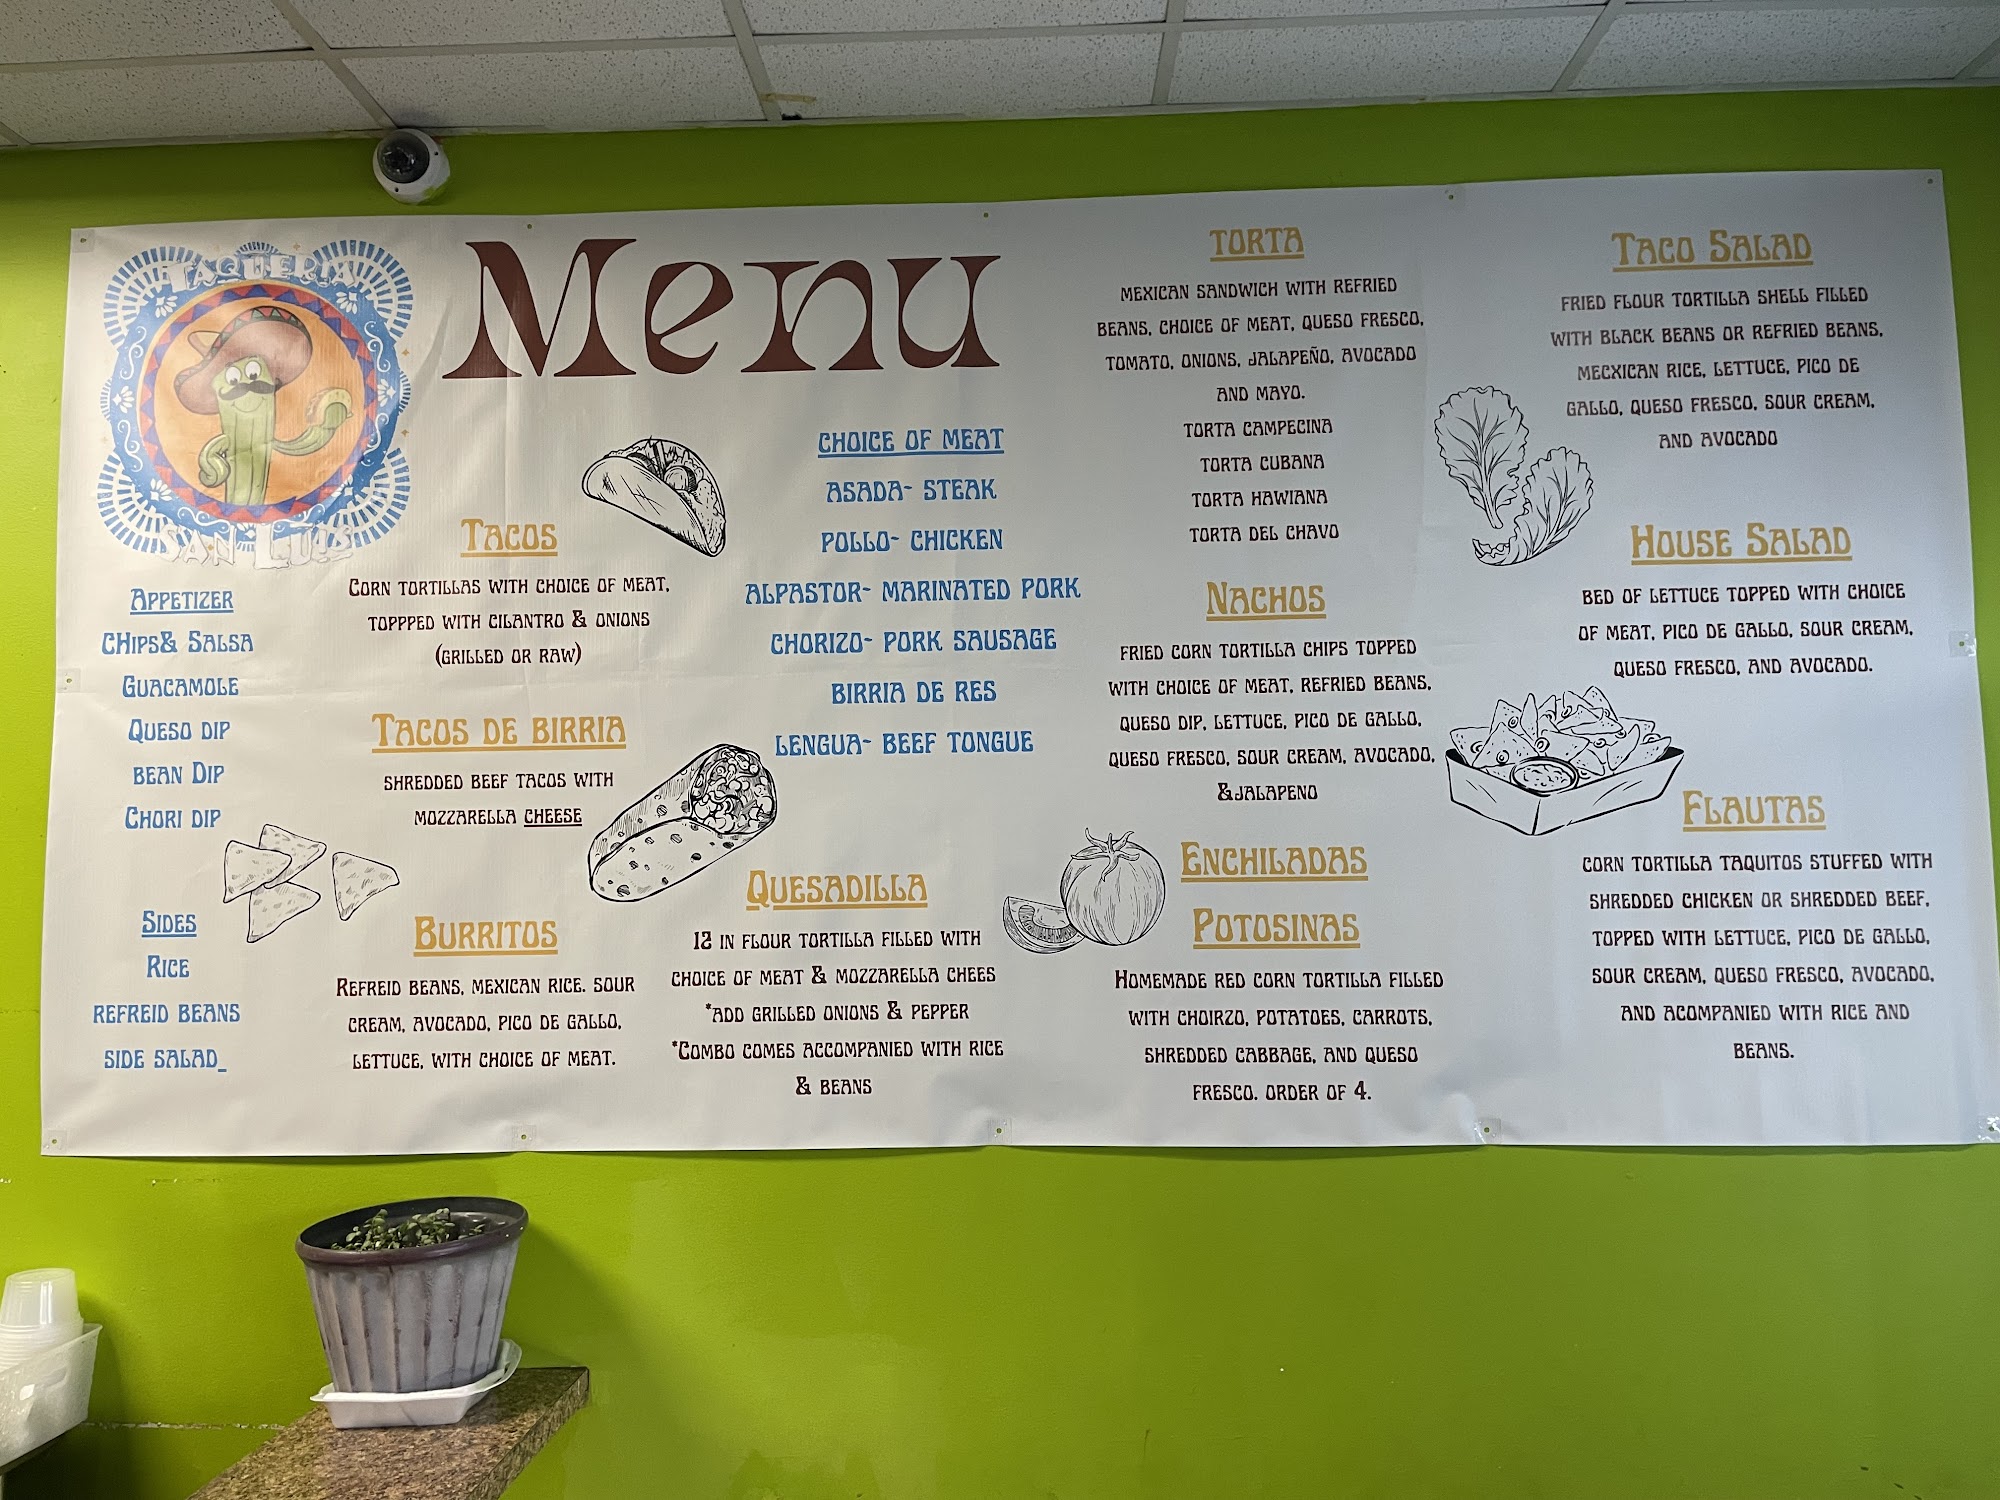 TAQUERIA
SAN LUIS
Menu
APPETIZER
CHIPS& SALSA
GUACAMOLE
QUESO DIP
BEAN DIP
CHORI DIP
SIDES
RICE
REFREID BEANS
SIDE SALAD_
TACOS
CORN TORTILLAS WITH CHOICE OF MEAT,
TOPPPED WITH CILANTRO & ONIONS
(GRILLED OR RAW)
TACOS DE BIRRIA
SHREDDED BEEF TACOS WITH
MOZZARELLA CHEESE
BURRITOS
REFREID BEANS, MEXICAN RICE. SOUR
CREAM, AVOCADO, PICO DE GALLO,
LETTUCE, WITH CHOICE OF MEAT.
CHOICE OF MEAT
ASADA- STEAK
POLLO- CHICKEN
ALPASTOR- MARINATED PORK
CHORIZO- PORK SAUSAGE
BIRRIA DE RES
LENGUA- BEEF TONGUE
QUESADILLA
12 IN FLOUR TORTILLA FILLED WITH
CHOICE OF MEAT & MOZZARELLA CHEES
*ADD GRILLED ONIONS & PEPPER
*COMBO COMES ACCOMPANIED WITH RICE
& BEANS
TORTA
MEXICAN SANDWICH WITH REFRIED
BEANS, CHOICE OF MEAT, QUESO FRESCO,
TOMATO, ONIONS, JALAPEÑO, AVOCADO
AND MAYO.
TORTA CAMPECINA
TORTA CUBANA
TORTA HAWIANA
TORTA DEL CHAVO
NACHOS
FRIED CORN TORTILLA CHIPS TOPPED
WITH CHOICE OF MEAT, REFRIED BEANS,
QUESO DIP, LETTUCE, PICO DE GALLO,
QUESO FRESCO, SOUR CREAM, AVOCADO,
&JALAPENO
ENCHILADAS
POTOSINAS
HOMEMADE RED CORN TORTILLA FILLED
WITH CHOIRZO, POTATOES, CARROTS,
SHREDDED CABBAGE, AND QUESO
FRESCO. ORDER OF 4.
TACO SALAD
FRIED FLOUR TORTILLA SHELL FILLED
WITH BLACK BEANS OR REFRIED BEANS,
MECXICAN RICE, LETTUCE, PICO DE
GALLO, QUESO FRESCO, SOUR CREAM,
AND AVOCADO
HOUSE SALAD
BED OF LETTUCE TOPPED WITH CHOICE
OF MEAT, PICO DE GALLO, SOUR CREAM,
QUESO FRESCO, AND AVOCADO.
FLAUTAS
CORN TORTILLA TAQUITOS STUFFED WITH
SHREDDED CHICKEN OR SHREDDED BEEF,
TOPPED WITH LETTUCE, PICO DE GALLO,
SOUR CREAM, QUESO FRESCO, AVOCADO,
AND ACOMPANIED WITH RICE AND
BEANS.